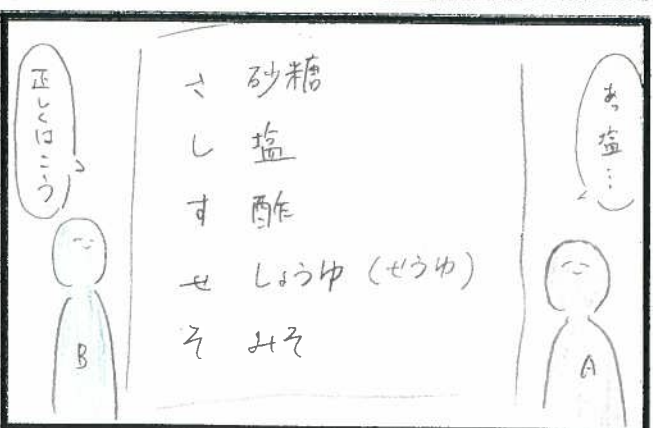 あっ塩…
さ 砂糖
し 塩
す 酢
せ しょうゆ（せうゆ）
そ みそ
正しくはこう
A
B